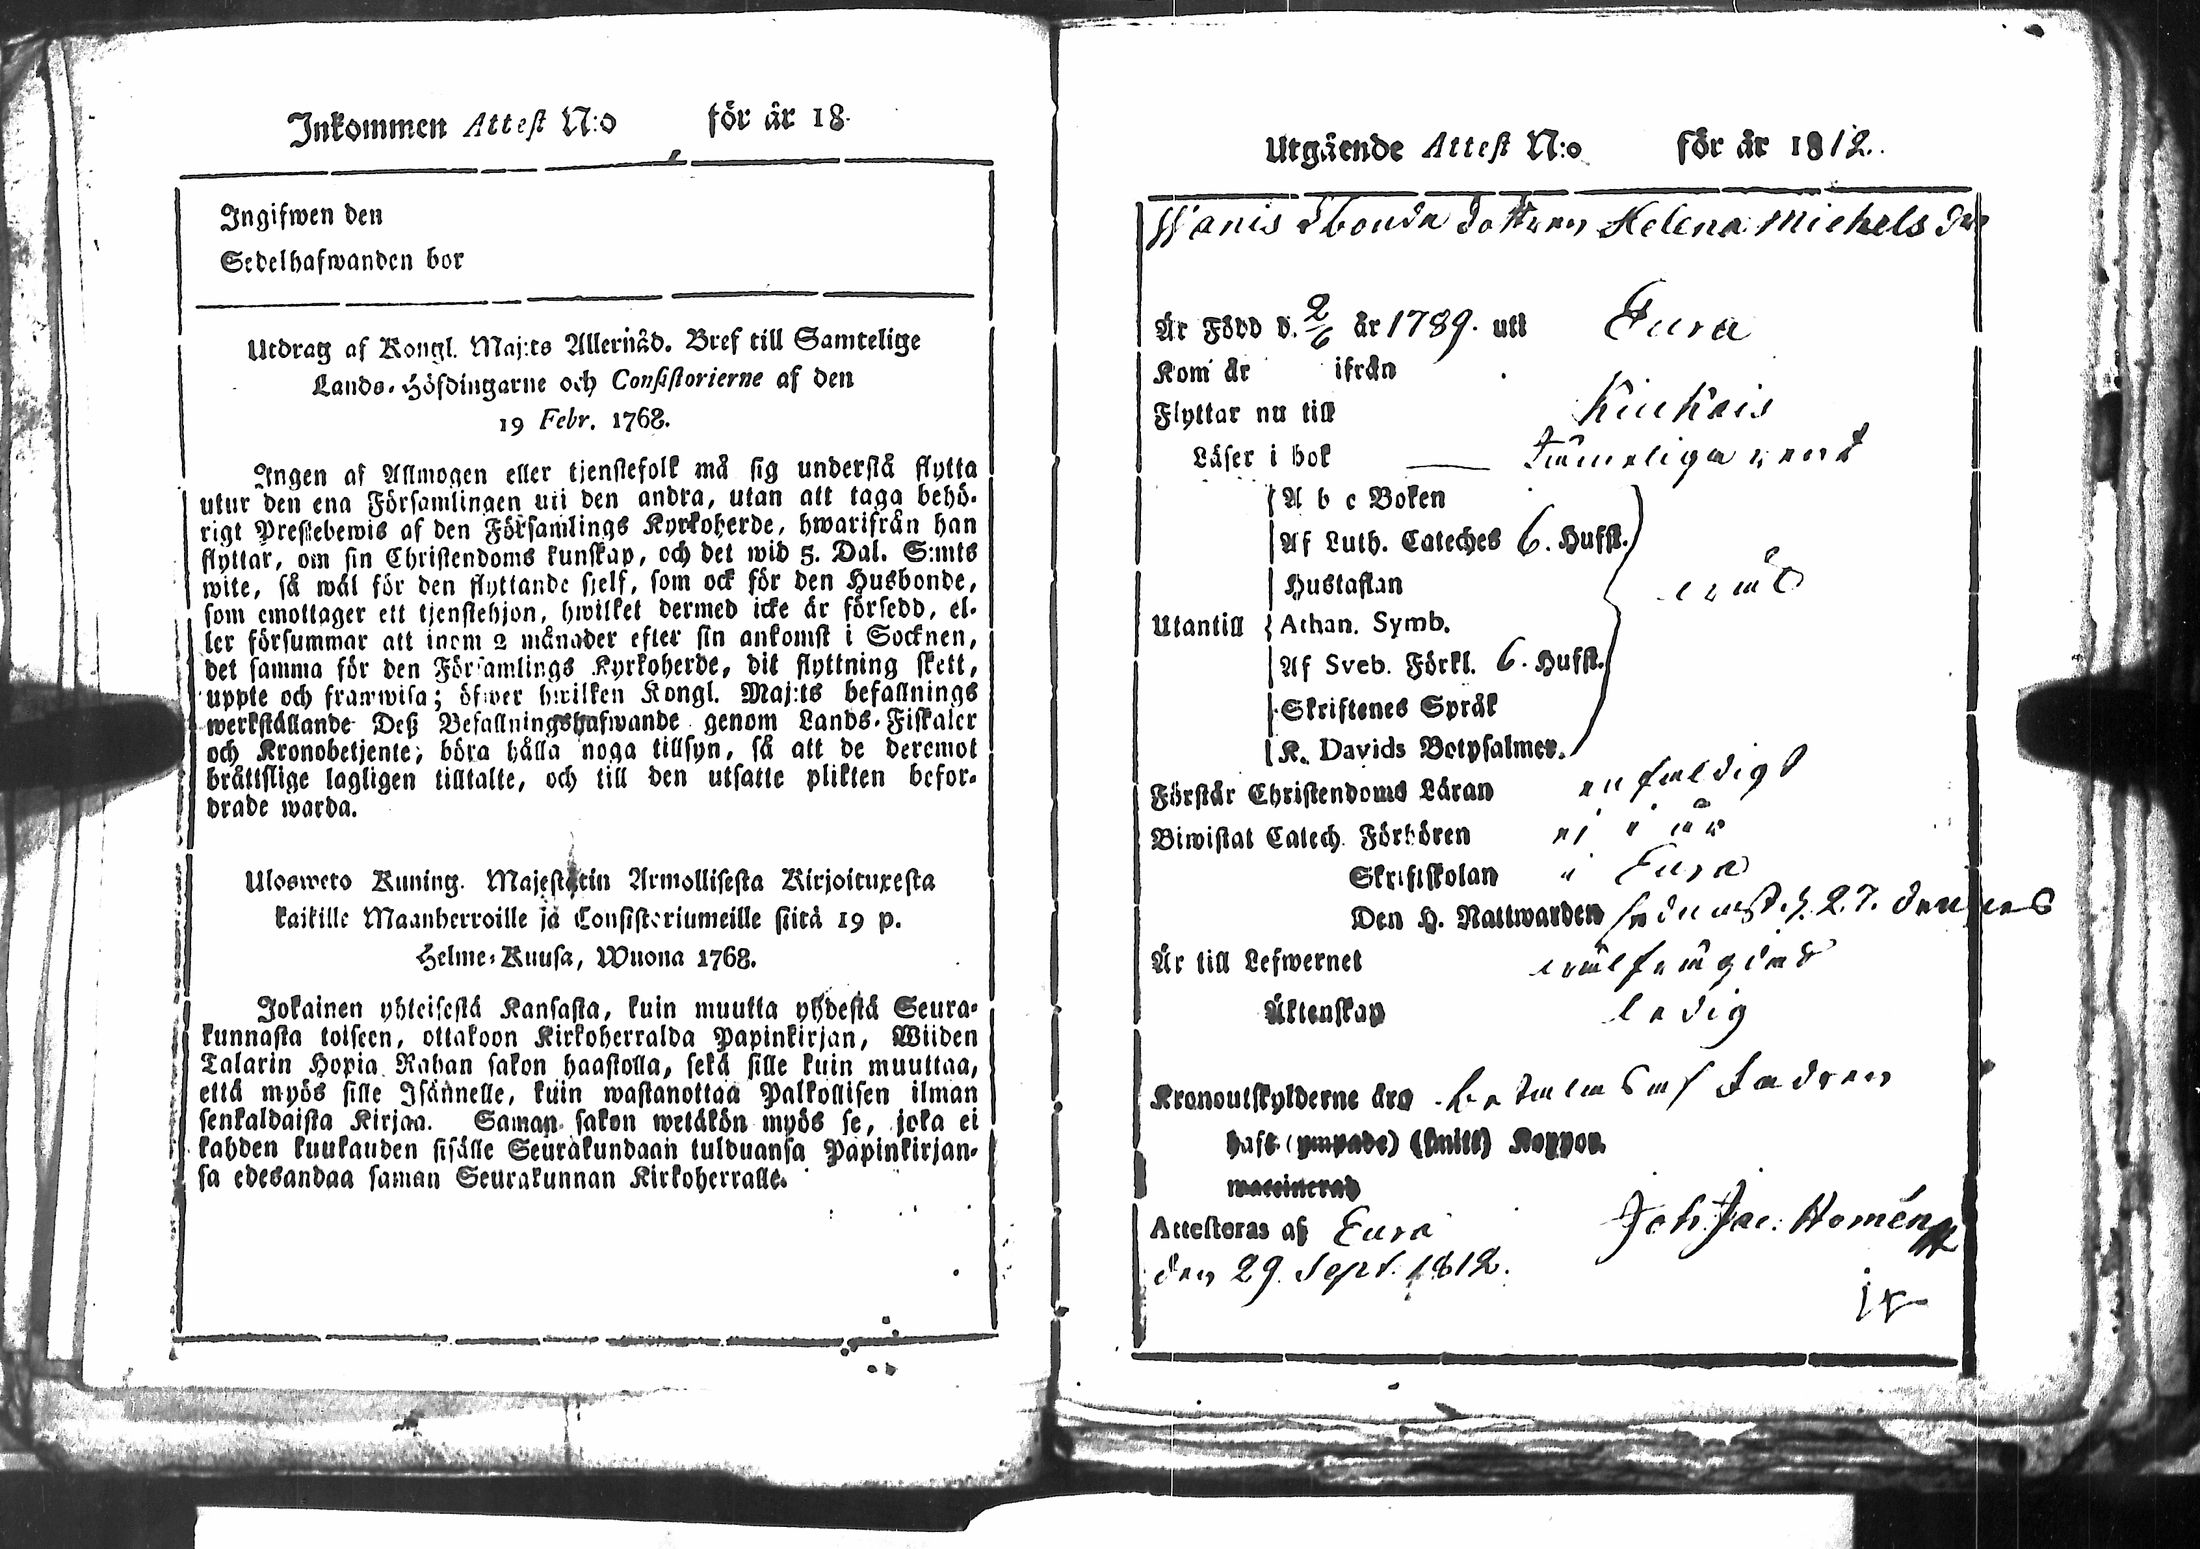 Inkommen Attest N:o för år 18
Ingifwen den
Sedelhafwanden bor
Utdrag af Kongl. Maj:ts Allernåd. Bref till Samtelige
Lands-Höfdingarne och Consistorierne af den
19 Febr. 1768.
Ingen af Allmogen eller tjenstefolk må sig understå flytta
utur den ena Församlingen uti den andra, utan att taga behö-
rigt Prestebewis af den Församlings Kyrkoherde, hwarifrån han
flyttar, om sin Christendoms kunskap, och det wid 5. Dal. S:mts
wite, så wäl för den flyttande sjelf, som ock för den Husbonde,
som emottager ett tjenstehjon, hwilket dermed icke är försedd, el-
ler försummar att inom 2 månader efter sin ankomst i Socknen,
det samma för den Församlings Kyrkoherde, dit flyttning skett,
uppte och framwisa; öfwer hwilken Kongl. Maj:ts befallnings
werkställande Deß Befallningshafwande genom Lands-Fiskaler
och Kronobetjente, böra hålla noga tillsyn, så att de deremot
bråttslige lagligen tilltalte, och till den utsatte plikten befor-
drade warda.
Ulosweto Kuning. Majestetin Armollisesta Kirjoituxesta
kaikille Maanherroille ja Consistoriumeille siitä 19 p.
Helme-Kuusa, Wuona 1768.
Jokainen yhteisestä Kansasta, kuin muutta yhdestä Seura-
kunnasta toiseen, ottakoon Kirkoherralda Papinkirjan, Wiiden
Talarin Hopia Rahan sakon haastolla, sekä sille kuin muuttaa,
että myös sille Isännelle, kuin wastanottaa Palkollisen ilman
senkaldaista Kirjaa. Saman sakon wetäkön myös se, joka ei
kahden kuukauden sisälle Seurakundaan tulduansa Papinkirjan-
sa edesandaa saman Seurakunnan Kirkoherralle.
Utgående Attest N:o för år 1812.
Wanis Åbonde dottren Helena Michels dr
Är Född d. 2/6 år 1789. uti Eura
Kom år ifrån
Flyttar nu till Kiukais
Läser i bok — Tämeligen rent
A b c Boken
Af Luth. Cateches 6. Hufst.
Hustaflan
Utantill Athan. Symb.
Af Sveb. Förkl. 6. Hufst.
Skriftenes Språk
K. Davids Botpsalmer.
Förstår Christendoms Läran enfaldigt
Biwistat Catech. Förhören
Skriftskolan i Eura
Den H. Nattwarden sednast d. 27. dennes
Är till Lefwernet wälfrägdad
Äktenskap ledig
Kronoutskylderne äro betalas af Fadren
haft (ympade) (snitt) Koppor.
waccinerad
Attesteras af Eura Joh. Jac. Homén
den 29. Sept. 1812.